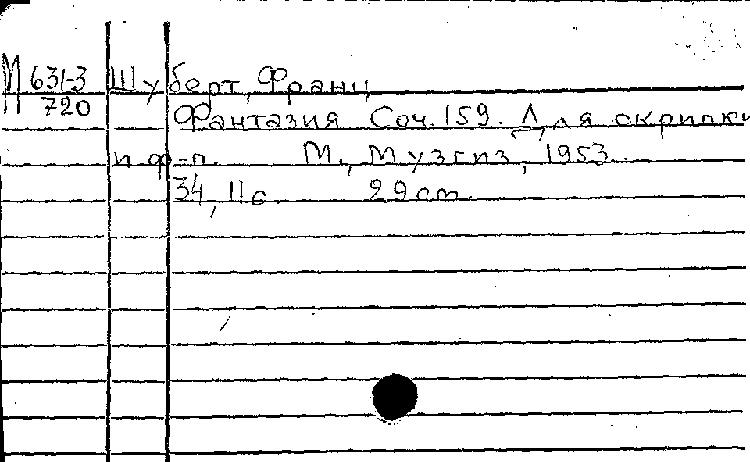 М 631-3 Шуберт, Франц
720 Фантазия Соч. 159. Для скрипки
и ф-п. М., Музгиз, 1953.
34, 11 с. 29 cm.